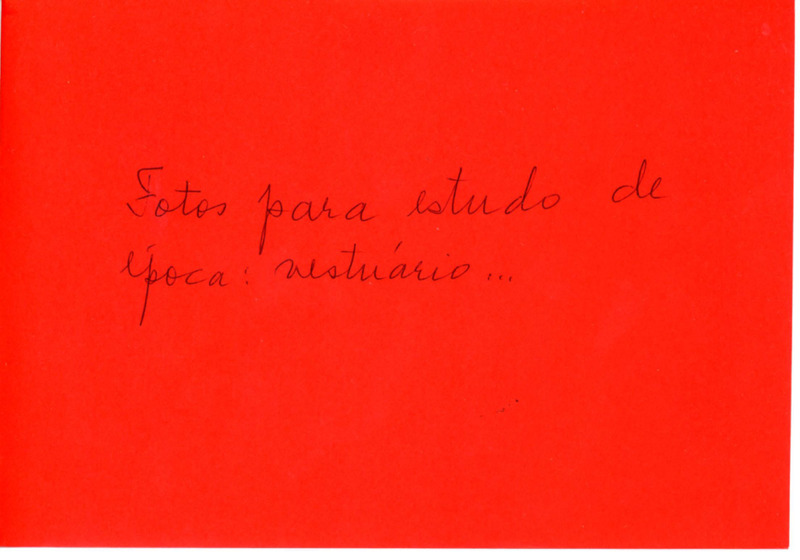 Fotos para estudo de
época: vestuário...